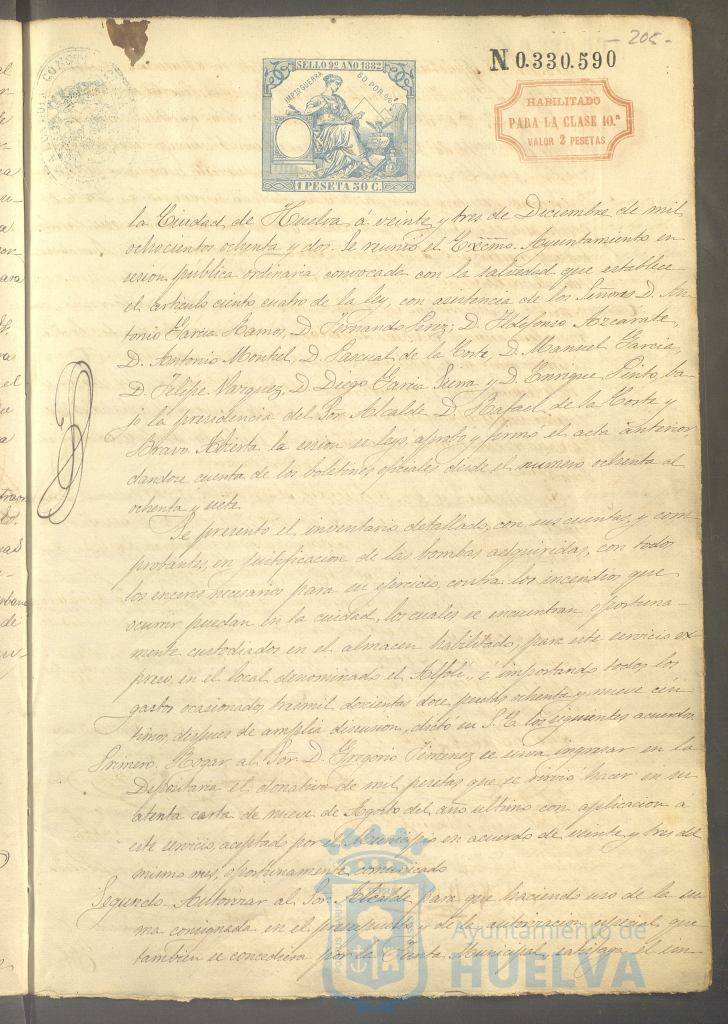 - 205 -
SELLO 9º AÑO 1882
IMPTO GUERRA 50 POR 90
1 PESETA 50 C.
N 0.330.590
HABILITADO
PARA LA CLASE 10.ª
VALOR 2 PESETAS
la Ciudad de Huelva á veinte y tres de Diciembre de mil
ochocientos ochenta y dos. Se reunió el Excmo. Ayuntamiento en
sesion pública ordinaria convocada con la
que establece
el articulo ciento cuatro de la ley, con asistencia de los Señores D. An-
tonio Garcia Ramos, D. Fernando Perez, D. Ildefonso Azcarate,
D. Antonio Montiel, D. Pascual de la Corte, D. Manuel Garcia,
D. Felipe Vazquez, D. Diego Garcia
y D. Enrique Pinto, ba-
jo la presidencia del Sor. Alcalde D. Rafael de la Corte y
Bravo. Abierta la sesion se leyó, aprobó y firmó el acta anterior,
dandose cuenta de los boletines oficiales desde el numero ochenta al
ochenta y siete.
Se presentó el inventario detallado, con sus cuentas, y com-
probantes, en justificacion de las bombas adquiridas, con todos
los enceres necesarios para su ejercicio, contra los incendios que
ocurrir puedan en la ciudad, los cuales se encuentran oportuna-
mente custodiados en el almacen habilitado, para este servicio ex-
preso, en el local denominado el Alfolí, é importando todos los
gastos ocasionados tresmil doscientas doce pesetas ochenta y nueve cén-
timos, despues de amplia discusion, dictó su S. E. los siguientes acuerdos.
Primero. Rogar al Sor. D. Gregorio Jimenez se sirva ingresar en la
Depositaria el donativo de mil pesetas que se sirvió hacer en su
atenta carta de nueve de Agosto del año ultimo con aplicacion á
este servicio, aceptado por el Municipio en acuerdo de veinte y tres del
mismo mes, oportunamente comunicado
Segundo. Autorizar al Sor. Alcalde para que haciendo uso de la su-
ma consignada en el presupuesto y de la autorizacion especial que
tambien se concediera por la Junta Municipal, satisfaga el im-
Ayuntamiento de
HUELVA